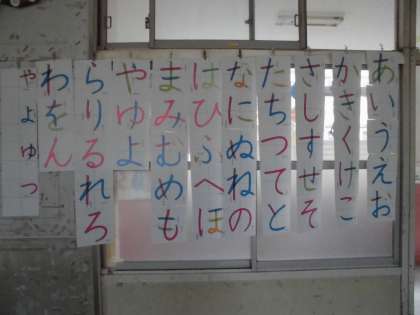 あいうえお
かきくけこ
さしすせそ
たちつてと
なにぬねの
はひふへほ
まみむめも
やゆよ
らりるれろ
わをん
ゃょゅっ